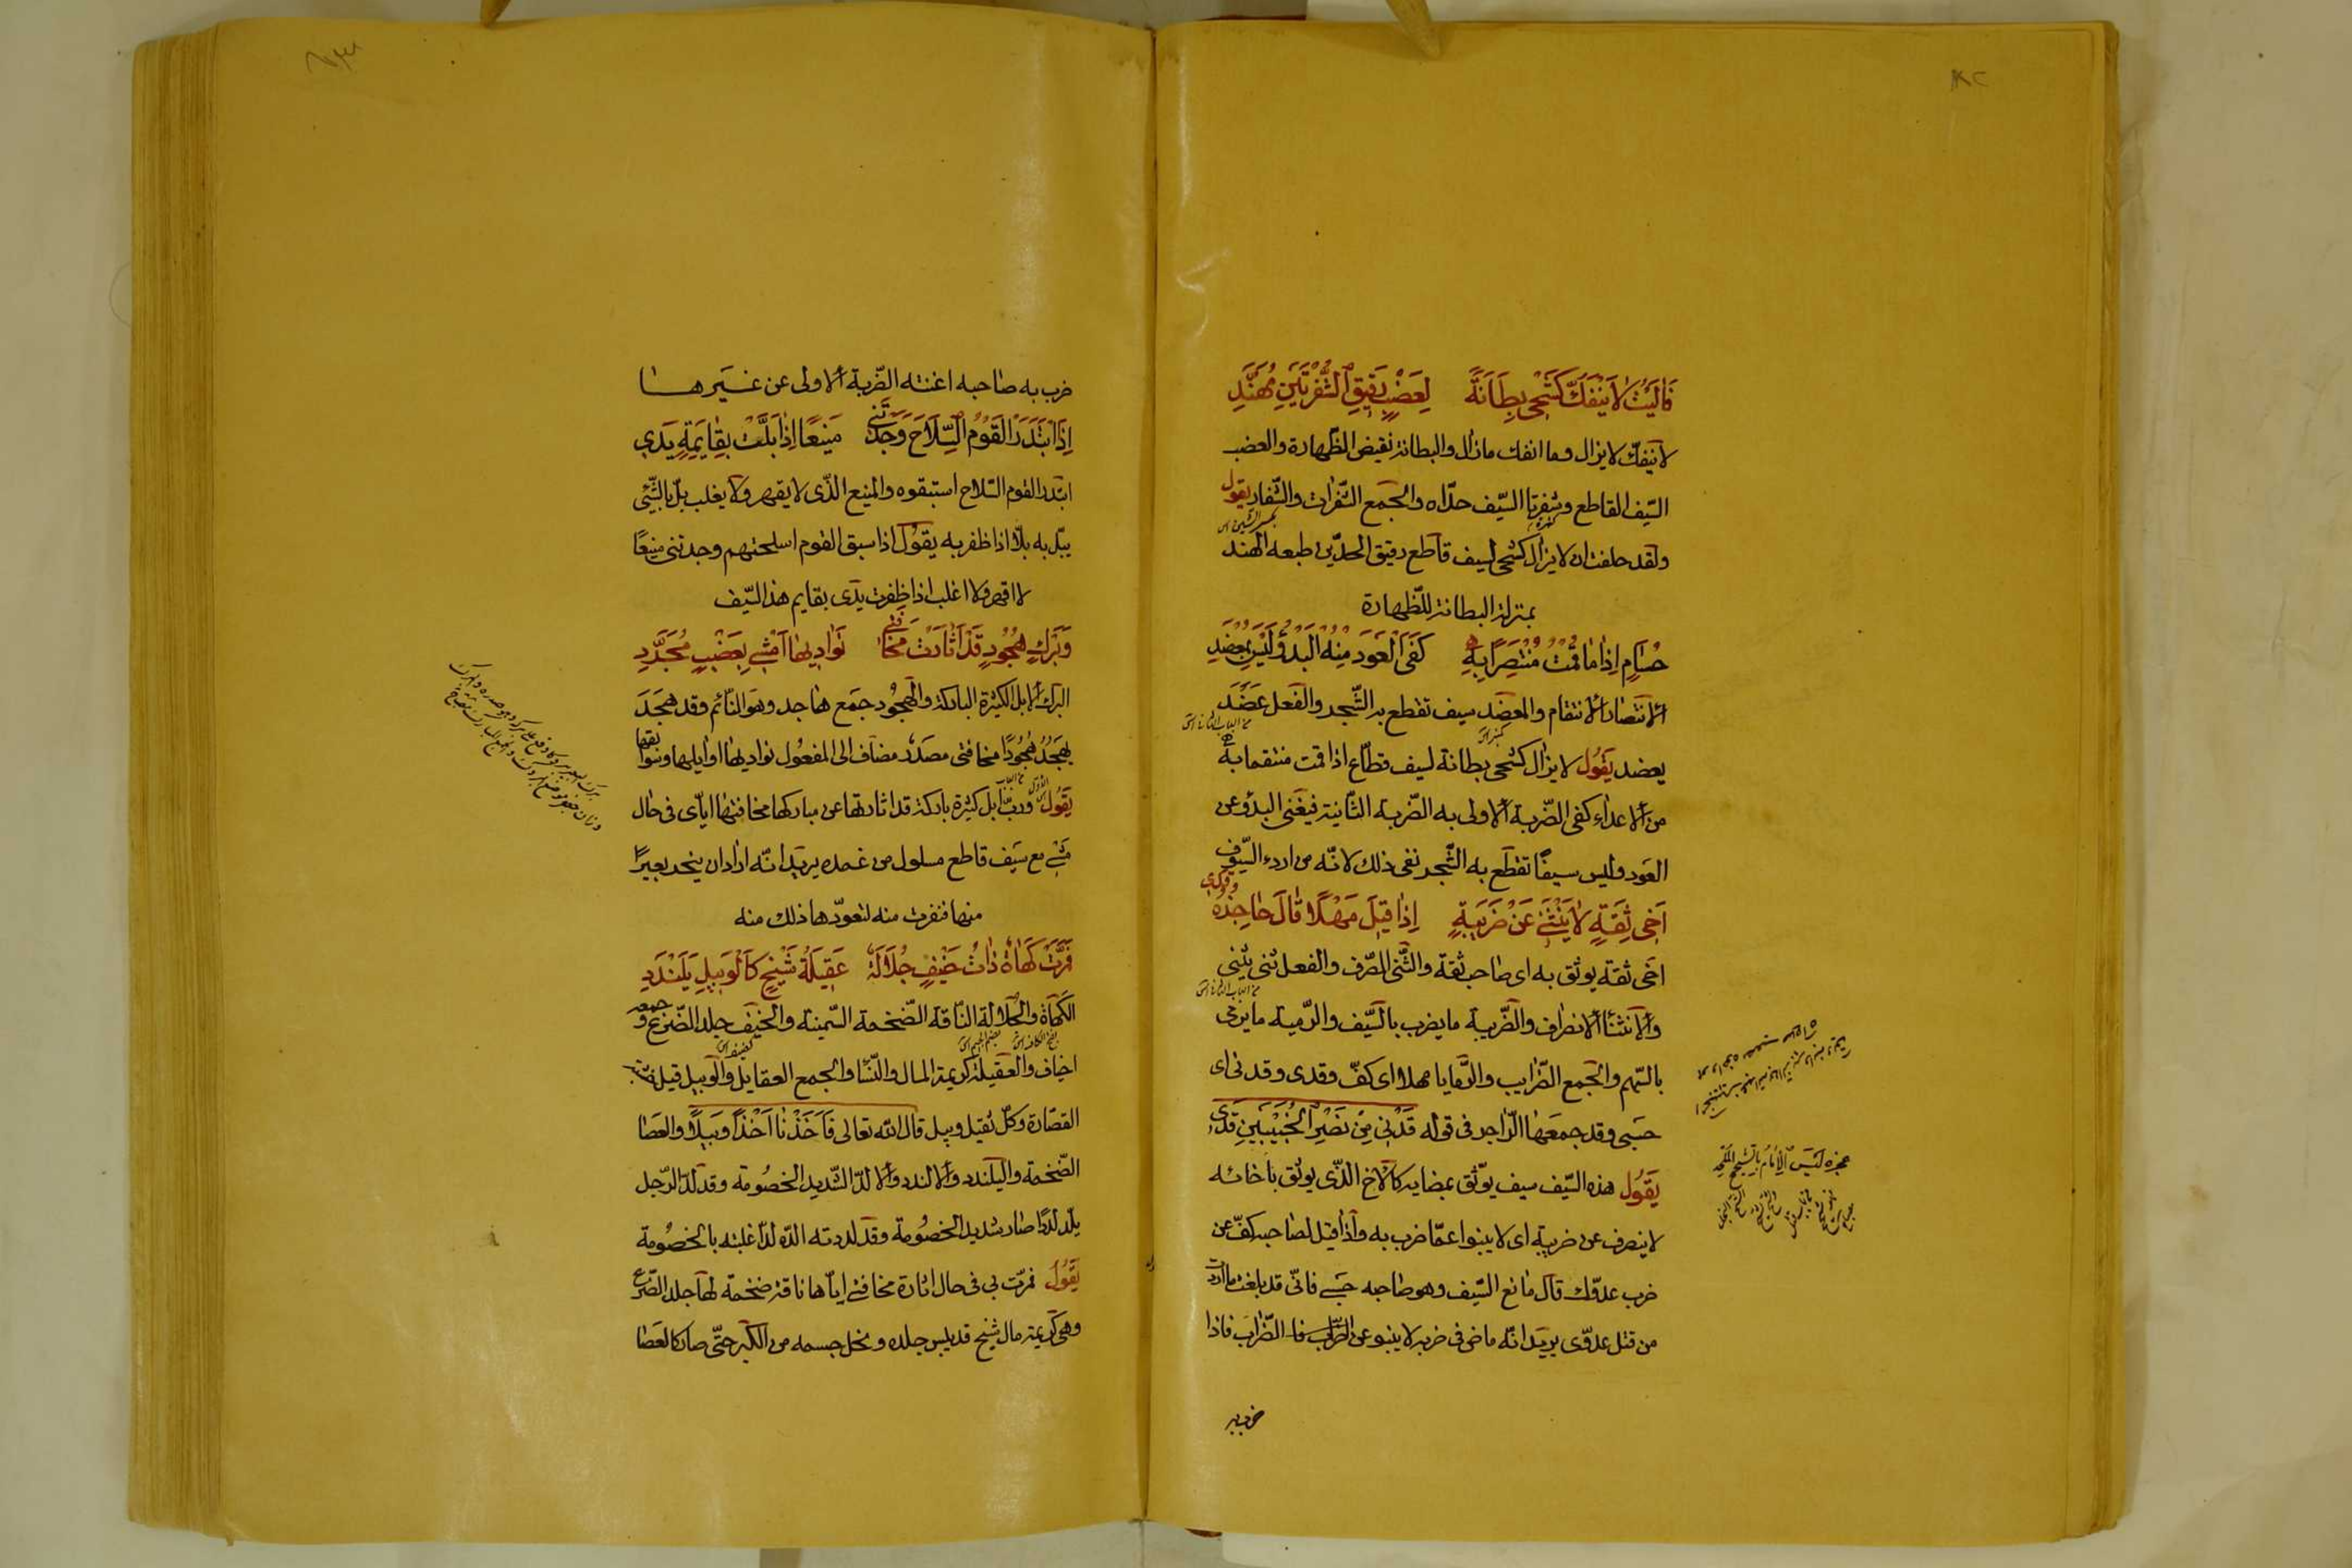 فَآلَيْتُ لَا يَنْفَكُّ كَشْحِي بِطَانَةً لِعَضْبٍ رَقِيقِ الشَّفْرَتَيْنِ مُهَنَّدِ
لا ينفكّ لا يزال وما انفك مازال والبطانة نقيض الظّهارة والعضب
السّيف القاطع وشفرتا السّيف حدّاه والجمع الشّفرات والشّفار يقول
ولقد حلفت ان لا يزال كشحى لسيف قاطع رقيق الحدّين طبعه الهند
بمنزلة البطانة للظّهارة
حُسَامٍ إِذَا مَا قُمْتُ مُنْتَصِرًا بِهِ كَفَى الْعَوْدَ مِنْهُ الْبَدْؤُ لَيْسَ بِمِعْضَدِ
الانتصار الانتقام والمعضد سيف تقطع به الشّجر والفعل عَضَدَ
يعضد يَقُولُ لا يزال كشحى بطانة لسيف قطّاع اذا قمت منتقما به
من الاعداء كفى الضّربة الاولى به الضّربة الثّانية فيغنى البدؤ عن
العود وليس سيفًا تقطع به الشّجر نفى ذلك لانّه من اردء السّيوف
اَخِي ثِقَةٍ لَا يَنْثَنِي عَنْ ضَرِيبَةٍ إِذَا قِيلَ مَهْلًا قَالَ حَاجِزُهُ وقدي
اخى ثقة يوثق به اى صاحب ثقة والثّنى الصّرف والفعل ثنى يثنى
والانثناء الانصراف والضّريبة ما يضرب بالسّيف والرّمية ما يرمى
بالسّهم والجمع الضّرايب والرّمايا مهلا اى كفّ وقدى وقدنى اى
حسبى وقد جمعها الرّاجز فى قوله قَدْنِي مِنْ نَصْرِ الْخُبَيْبَيْنِ قَدِي
يَقُولُ هذه السّيف سيف يوثق بمضايه كالاخ الّذى يوثق باخائه
لا ينصرف عن ضريبة اى لا ينبوا عمّا ضرب به واذا قيل لصاحبه كفّ عن
ضرب عدوّك قال مانع السّيف وهو صاحبه حسبي فانّى قد بلغت ما اردت
من قتل عدوّى يريد انّه ماضى فى ضربه لا ينبو عن الضّرايب فاذا
ضرب به
ضرب به صاحبه اغنته الضّربة الاولى عن غيرها
إِذَا ابْتَدَرَ الْقَوْمُ السِّلَاحَ وَجَدْتَنِي مَنِيعًا إِذَا بَلَّتْ بِقَايِمَةٍ يَدِي
ابتدر القوم السّلاح استبقوه والمنيع الذّى لا يقهر ولا يغلب بلّ بالشّئ
يبلّ به بلّا اذا ظفر به يَقُولُ اذا سبق القوم اسلحتهم وجدتنى منيعًا
لا اقهر ولا اغلب اذا ظفرت يدى بقايم هذ السّيف
وَبَرْكٍ هُجُودٍ قَدْ أَثَارَتْ مَخَافَتِي نَوَادِيهَا أَمْشِي بِعَضْبٍ مُجَرَّدِ
البرك الابل الكثيرة الباركة والهجود جمع هاجد وهو النّائم وقد هجد
يهجد هُجُودًا مخافتى مصدر مضاف الى المفعول نواديها اوايلها وسوابقها
يَقُولُ وربّ ابل كثيرة باركة قد اثارتها عن مباركها مخافتها ايّاى فى حال
مشيى مع سيف قاطع مسلول من غمده يريد انّه اراد ان ينحر بعيرًا
منها فنفرت منه لتعوّدها ذلك منه
فَمَرَّتْ كَهَاةٌ ذَاتُ خَيْفٍ جُلَالَةٌ عَقِيلَةُ شَيْخٍ كَالْوَبِيلِ يَلَنْدَدِ
الكهاة والجُلالة النّاقة الضّخمة السّمينة والخيف جلد الضّرع وجمعه
اخياف والعقيلة كريمة المال والنّسا والجمع العقايل والوبيل قيل
القصّارة وكلّ ثقيل وبيل قال اللّه تعالى فَاَخَذْنَا اَخْذًا وَبِيلًا والعصا
الضّخمة واليلندد والالندد والالدّ الشّديد الخصُومة وقد لدّ الرّجل
يلدّ لددًا صار شديد الخصُومة وقد لددته الدّه لدّا غلبته بالخصُومة
يَقُولُ فمرّت بى فى حال اثارة مخافتى ايّاها ناقة ضخمة لها جلد الضّرع
وهى كريمة مال شيخ قد يبس جلده ونحل جسمه من الكبر حتّى صار كالعصا